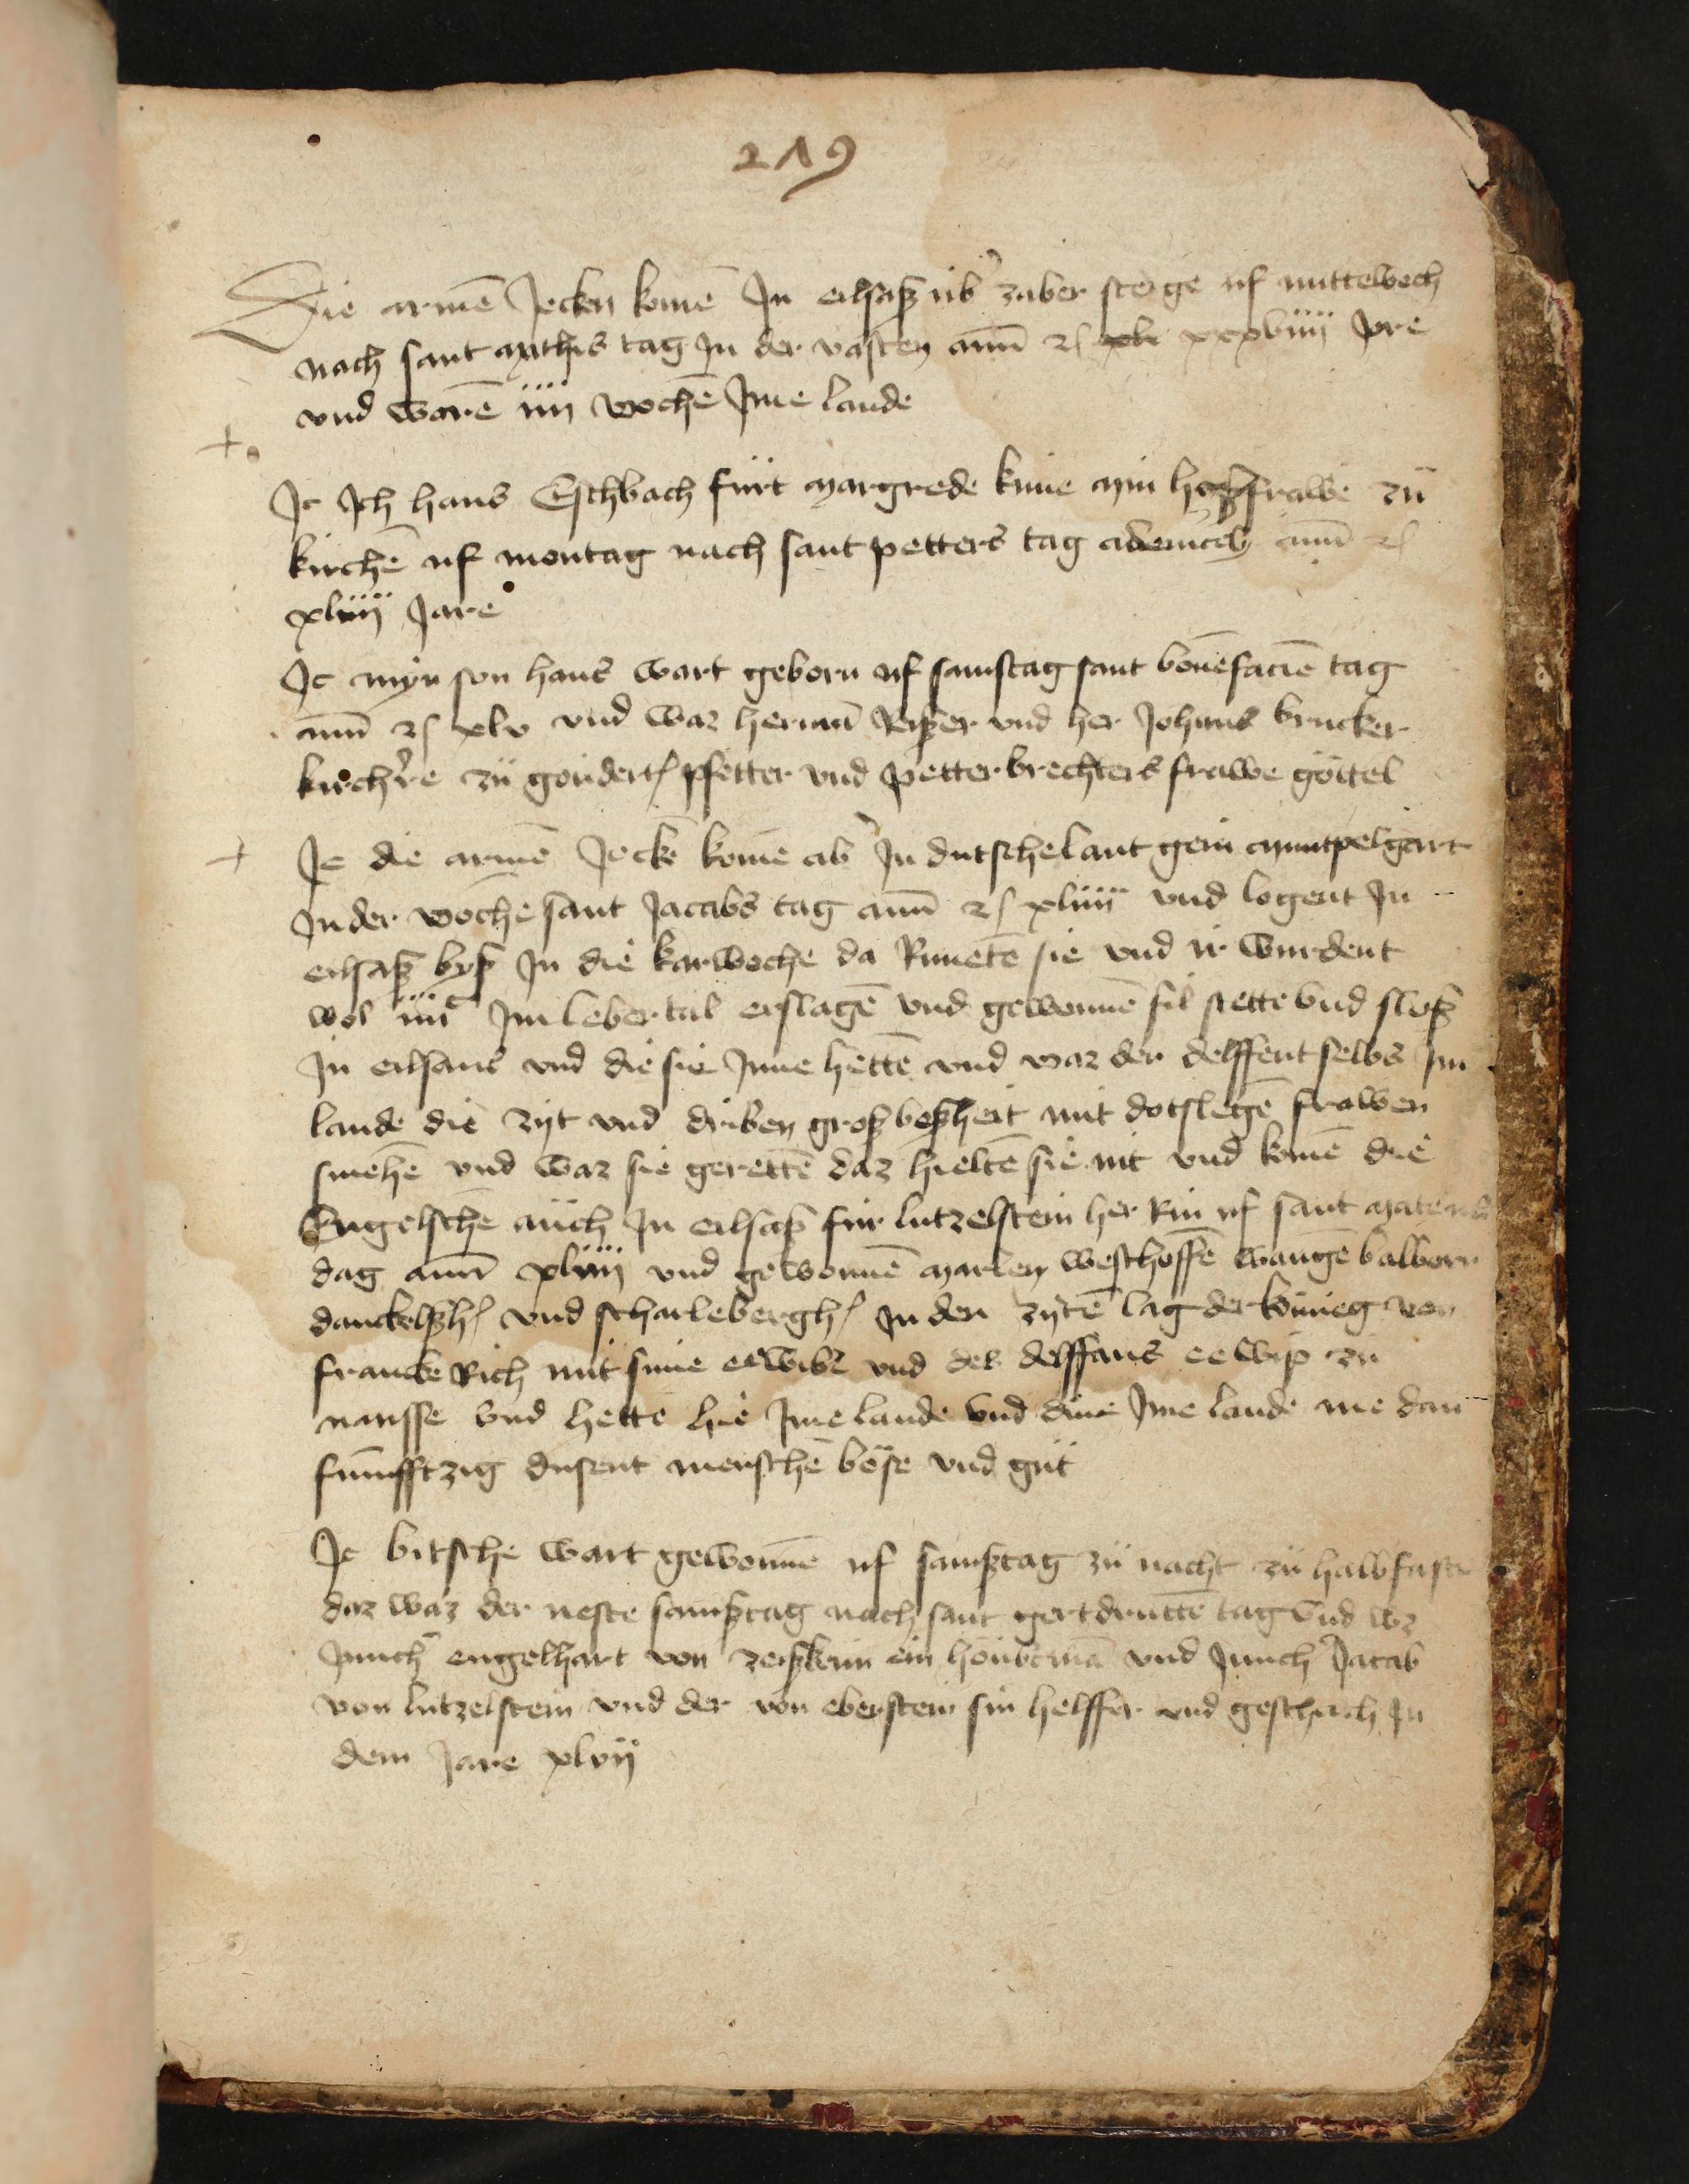 219
Die armē Jecken komē Jn eilsaß üb' zaber steige uf mittewoch
nach sant mathis tag Jn der vasten anno xxxviiij Jore
vnd worē iiij wochē Jme lande
Jt Jch hans Eschbach fürt margrede küne min hußfrawe zü
kirchē uf montag nach sant petters tag anno
xliiij Jare
Jt myn son hans wart geborn uf samstag sant bonefaciē tag
anno xlv vnd waz hermā vnd her Johans brucker
kirch're zü pfetter vnd petter brechters frawe göttel
Jt die armē Jeckē komē ab' Jn dutschelant gein muntpelgart
Jn der wochē sant Jacobs tag anno xliiij vnd logent Jn
eilsaß byß Jn die karwoche da Rumetē sie vnd ir wurdent
wol iiijᶜ Jm lebertal erslagē vnd gewonnē fil stette vnd sloß
Jn eilsaas vnd die sie Jnne hettē vnd waz der delffent selbs Jm
lande die zijt vnd driben groß boßheit mit dotslegē frawen
smehē vnd waz sie gerettē daz hieltē sie nit vnd komē die
Engelschē auch Jn eilsaß für lutzelstein her Rin uf sant
dag anno xliiij vnd gewonnē marley westhoffē wangē balborn
danckelßh' vnd scharlebergh' Jn den zytē lag der könieg von
franckeRich mit sime eewibe vnd des delffans eewip zü
nansse vnd hette hie Jme lande vnd Jme lande me dan
fünfftzig dusent menschē böse vnd güt
Jt bitsche wart gewonnē uf samßtag zü nacht zü halbfaste
daz waz der neste samßtag nach sant gertdruttē tag vnd wz
Junch' engelhart von ein houbtmā vnd Junch' Jacob
von lutzelstein vnd der von eberstein sin helffer vnd geschach Jn
dem Jare xlvij